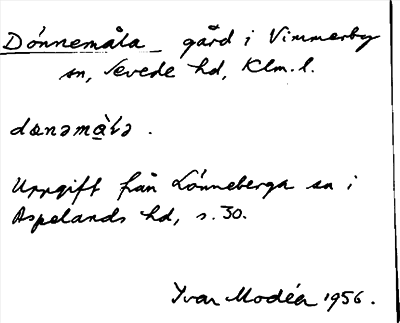 Dönnemåla _ gård i Vimmerby
sn, Sevede hd, Klm. l.
dɶnəmà̱lə .
Uppgift från Lönneberga sn i
Aspelands hd, s. 30.
Yvar Modéer 1956.